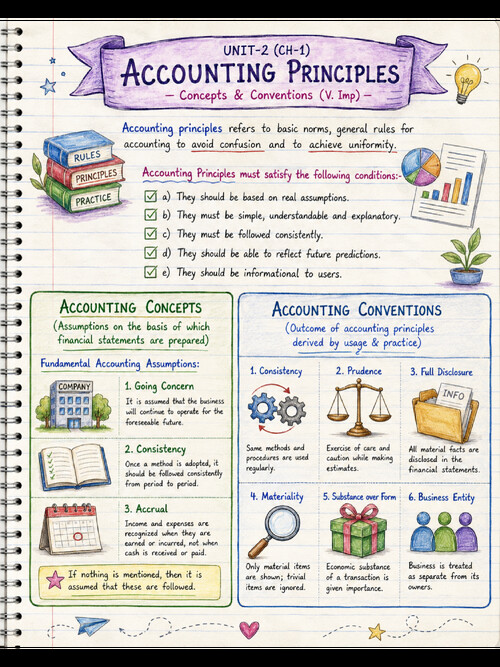 UNIT-2 (CH-1)
ACCOUNTING PRINCIPLES
– Concepts & Conventions (V. Imp) –
Accounting principles refers to basic norms, general rules for
accounting to avoid confusion and to achieve uniformity.
RULES
PRINCIPLES
PRACTICE
Accounting Principles must satisfy the following conditions:-
a) They should be based on real assumptions.
b) They must be simple, understandable and explanatory.
c) They must be followed consistently.
d) They should be able to reflect future predictions.
e) They should be informational to users.
ACCOUNTING CONCEPTS
(Assumptions on the basis of which
financial statements are prepared)
Fundamental Accounting Assumptions:
COMPANY
1. Going Concern
It is assumed that the business
will continue to operate for the
foreseeable future.
2. Consistency
Once a method is adopted, it
should be followed consistently
from period to period.
3. Accrual
Income and expenses are
recognized when they are
earned or incurred, not when
cash is received or paid.
If nothing is mentioned, then it is
assumed that these are followed.
ACCOUNTING CONVENTIONS
(Outcome of accounting principles
derived by usage & practice)
1. Consistency
Same methods and
procedures are used
regularly.
2. Prudence
Exercise of care and
caution while making
estimates.
3. Full Disclosure
INFO
All material facts are
disclosed in the
financial statements.
4. Materiality
Only material items
are shown; trivial
items are ignored.
5. Substance over Form
Economic substance
of a transaction is
given importance.
6. Business Entity
Business is treated
as separate from its
owners.